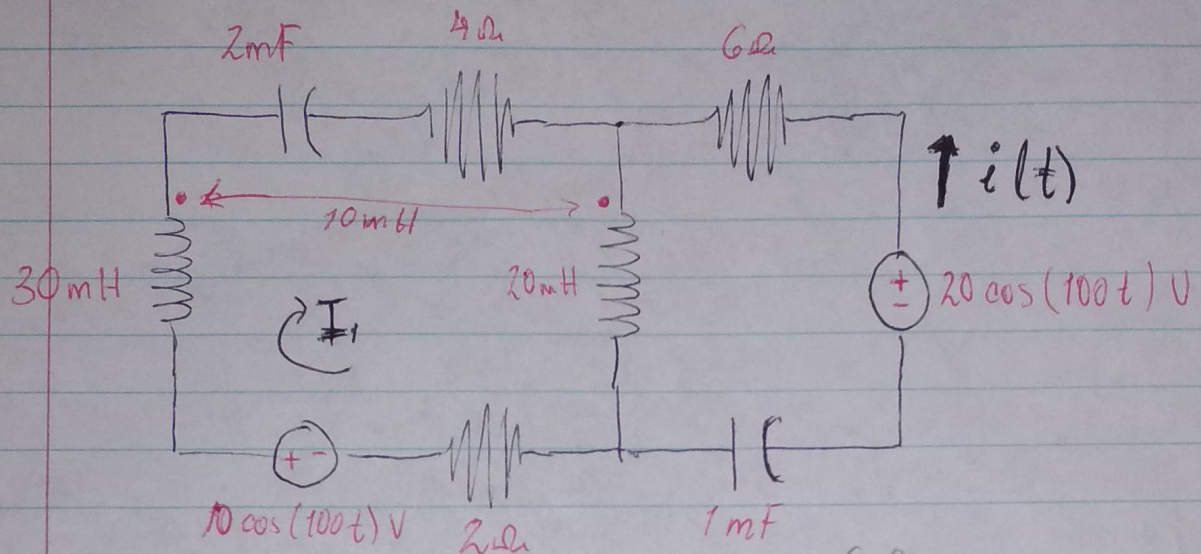 2mF 4Ω 6Ω
i(t)
10mH
30mH I₁ 20mH + - 20 cos(100t) V
+ -
10 cos(100t) V 2Ω 1mF